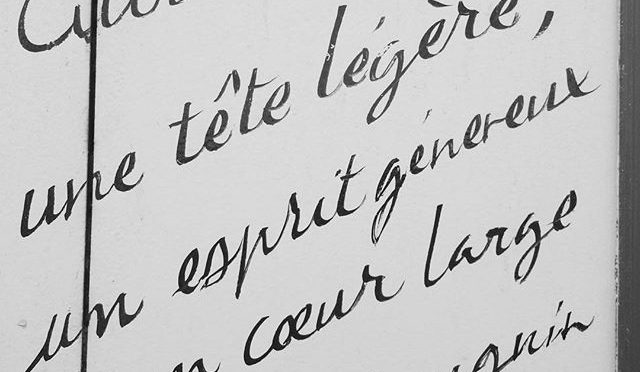 une tête légère,
un esprit généreux
un cœur large